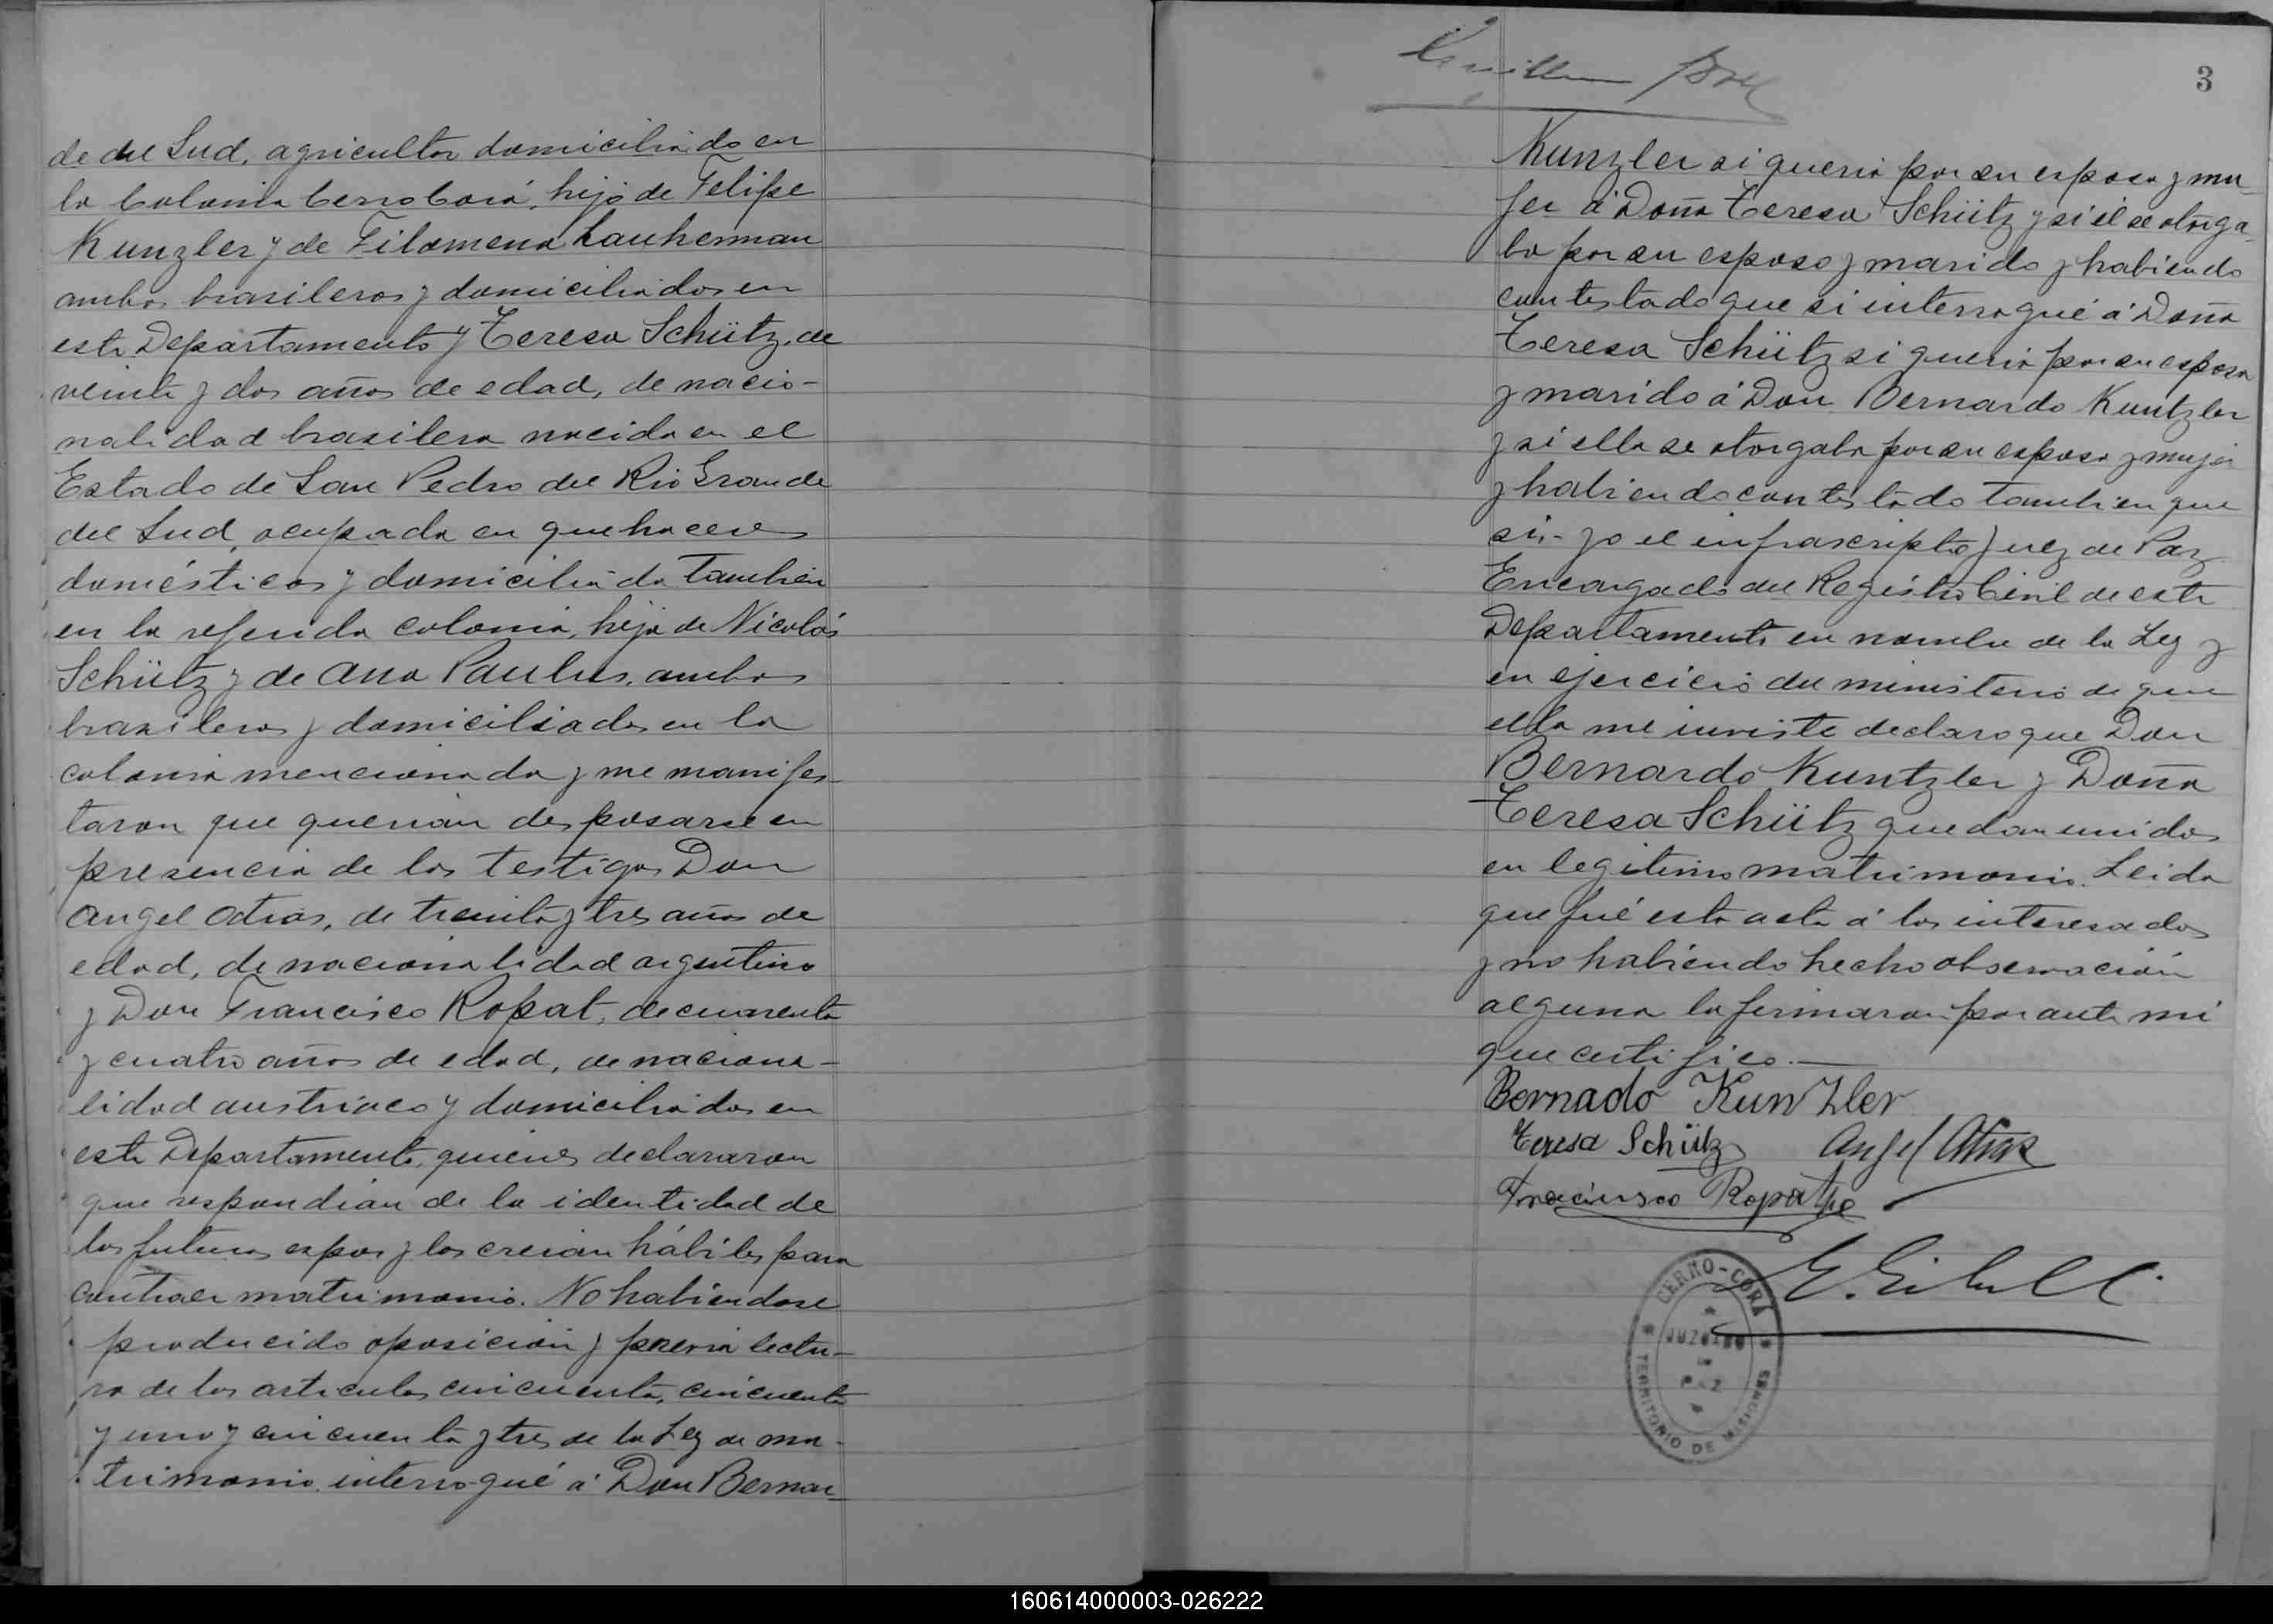 de del Sud, agricultor domiciliado en
la Colonia Cerro Corá, hijo de Felipe
Kunzler y de Filomena Lauherman
ambos brasileros y domiciliados en
este Departamento y Teresa Schütz, de
veinte y dos años de edad, de nacio-
nalidad brasilera nacida en el
Estado de San Pedro del Rio Grande
del Sud, ocupada en quehaceres
domésticos y domiciliada tambien
en la referida colonia, hija de Nicolás
Schütz y de Ana Paulus, ambos
brasileros y domiciliados en la
colonia mencionada y me manifes-
taron que querian desposarse en
presencia de los testigos Don
Angel Atias, de treinta y tres años de
edad, de nacionalidad argentino
y Don Francisco Ropat, de cuarenta
y cuatro años de edad, de naciona-
lidad austriaco y domiciliados en
este Departamento, quienes declararon
que respondian de la identidad de
los futuros espos y los creian hábiles para
contraer matrimonio. No habiendose
producido oposición y previa lectu-
ra de los articulos cincuenta, cincuenta
y uno y cincuenta y tres de la Ley de ma-
trimonio interrogué á Don Bernar-
3
Kunzler si queria por su esposa y mu-
jer á Doña Teresa Schütz y si él se otorga-
ba por su esposo y marido y habiendo
contestado que si interrogué á Doña
Teresa Schütz si queria por su esposo
y marido á Don Bernardo Kuntzler
y si ella se otorgaba por su esposa y mujer
y habiendo contestado tambien que
si,- yo el infrascripto Juez de Paz
Encargado del Registro Civil de este
Departamento en nombre de la Ley y
en ejercicio del ministerio de que
ella me inviste declaro que Don
Bernardo Kuntzler y Doña
Teresa Schütz quedan unidos
en legitimo matrimonio. Leida
que fué esta acta á los interesados
y no habiendo hecho observación
alguna la firmaron por ante mi
que certifico.—
Bernado Kunzler
Teresa Schütz Angel Atias
Ropatpe
CERRO-CORÁ
JUZGADO
DE
PAZ
TERRITORIO DE MISIONES
160614000003-026222